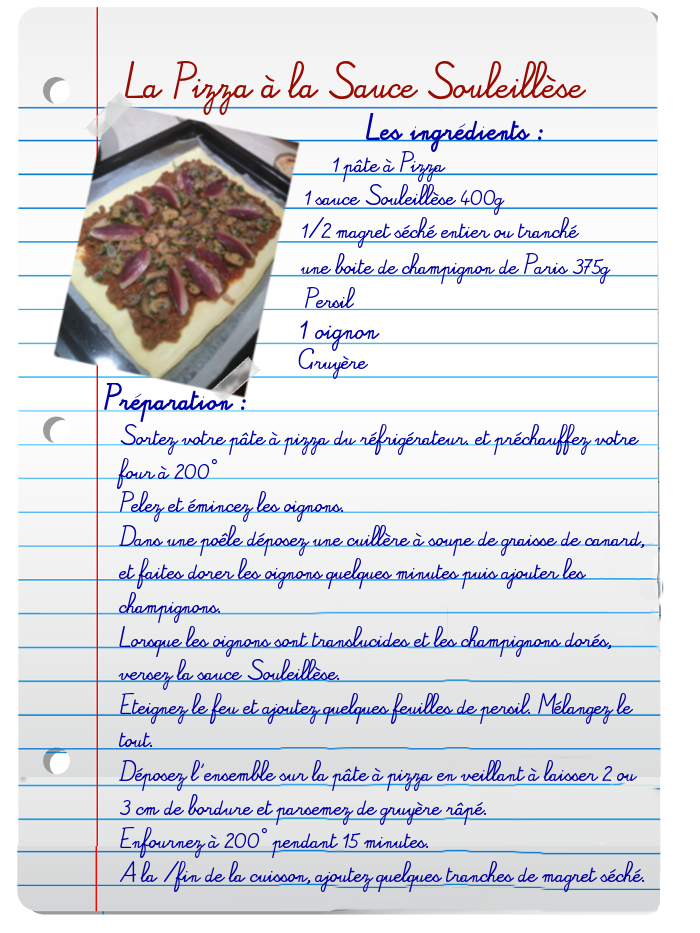 La Pizza à la Sauce Souleillèse
Les ingrédients :
1 pâte à Pizza
1 sauce Souleillèse 400g
1/2 magret séché entier ou tranché
une boite de champignon de Paris 375g
Persil
1 oignon
Gruyère
Préparation :
Sortez votre pâte à pizza du réfrigérateur. et préchauffez votre
four à 200°
Pelez et émincez les oignons.
Dans une poêle déposez une cuillère à soupe de graisse de canard,
et faites dorer les oignons quelques minutes puis ajouter les
champignons.
Lorsque les oignons sont translucides et les champignons dorés,
versez la sauce Souleillèse.
Eteignez le feu et ajoutez quelques feuilles de persil. Mélangez le
tout.
Déposez l'ensemble sur la pâte à pizza en veillant à laisser 2 ou
3 cm de bordure et parsemez de gruyère râpé.
Enfournez à 200° pendant 15 minutes.
A la /fin de la cuisson, ajoutez quelques tranches de magret séché.